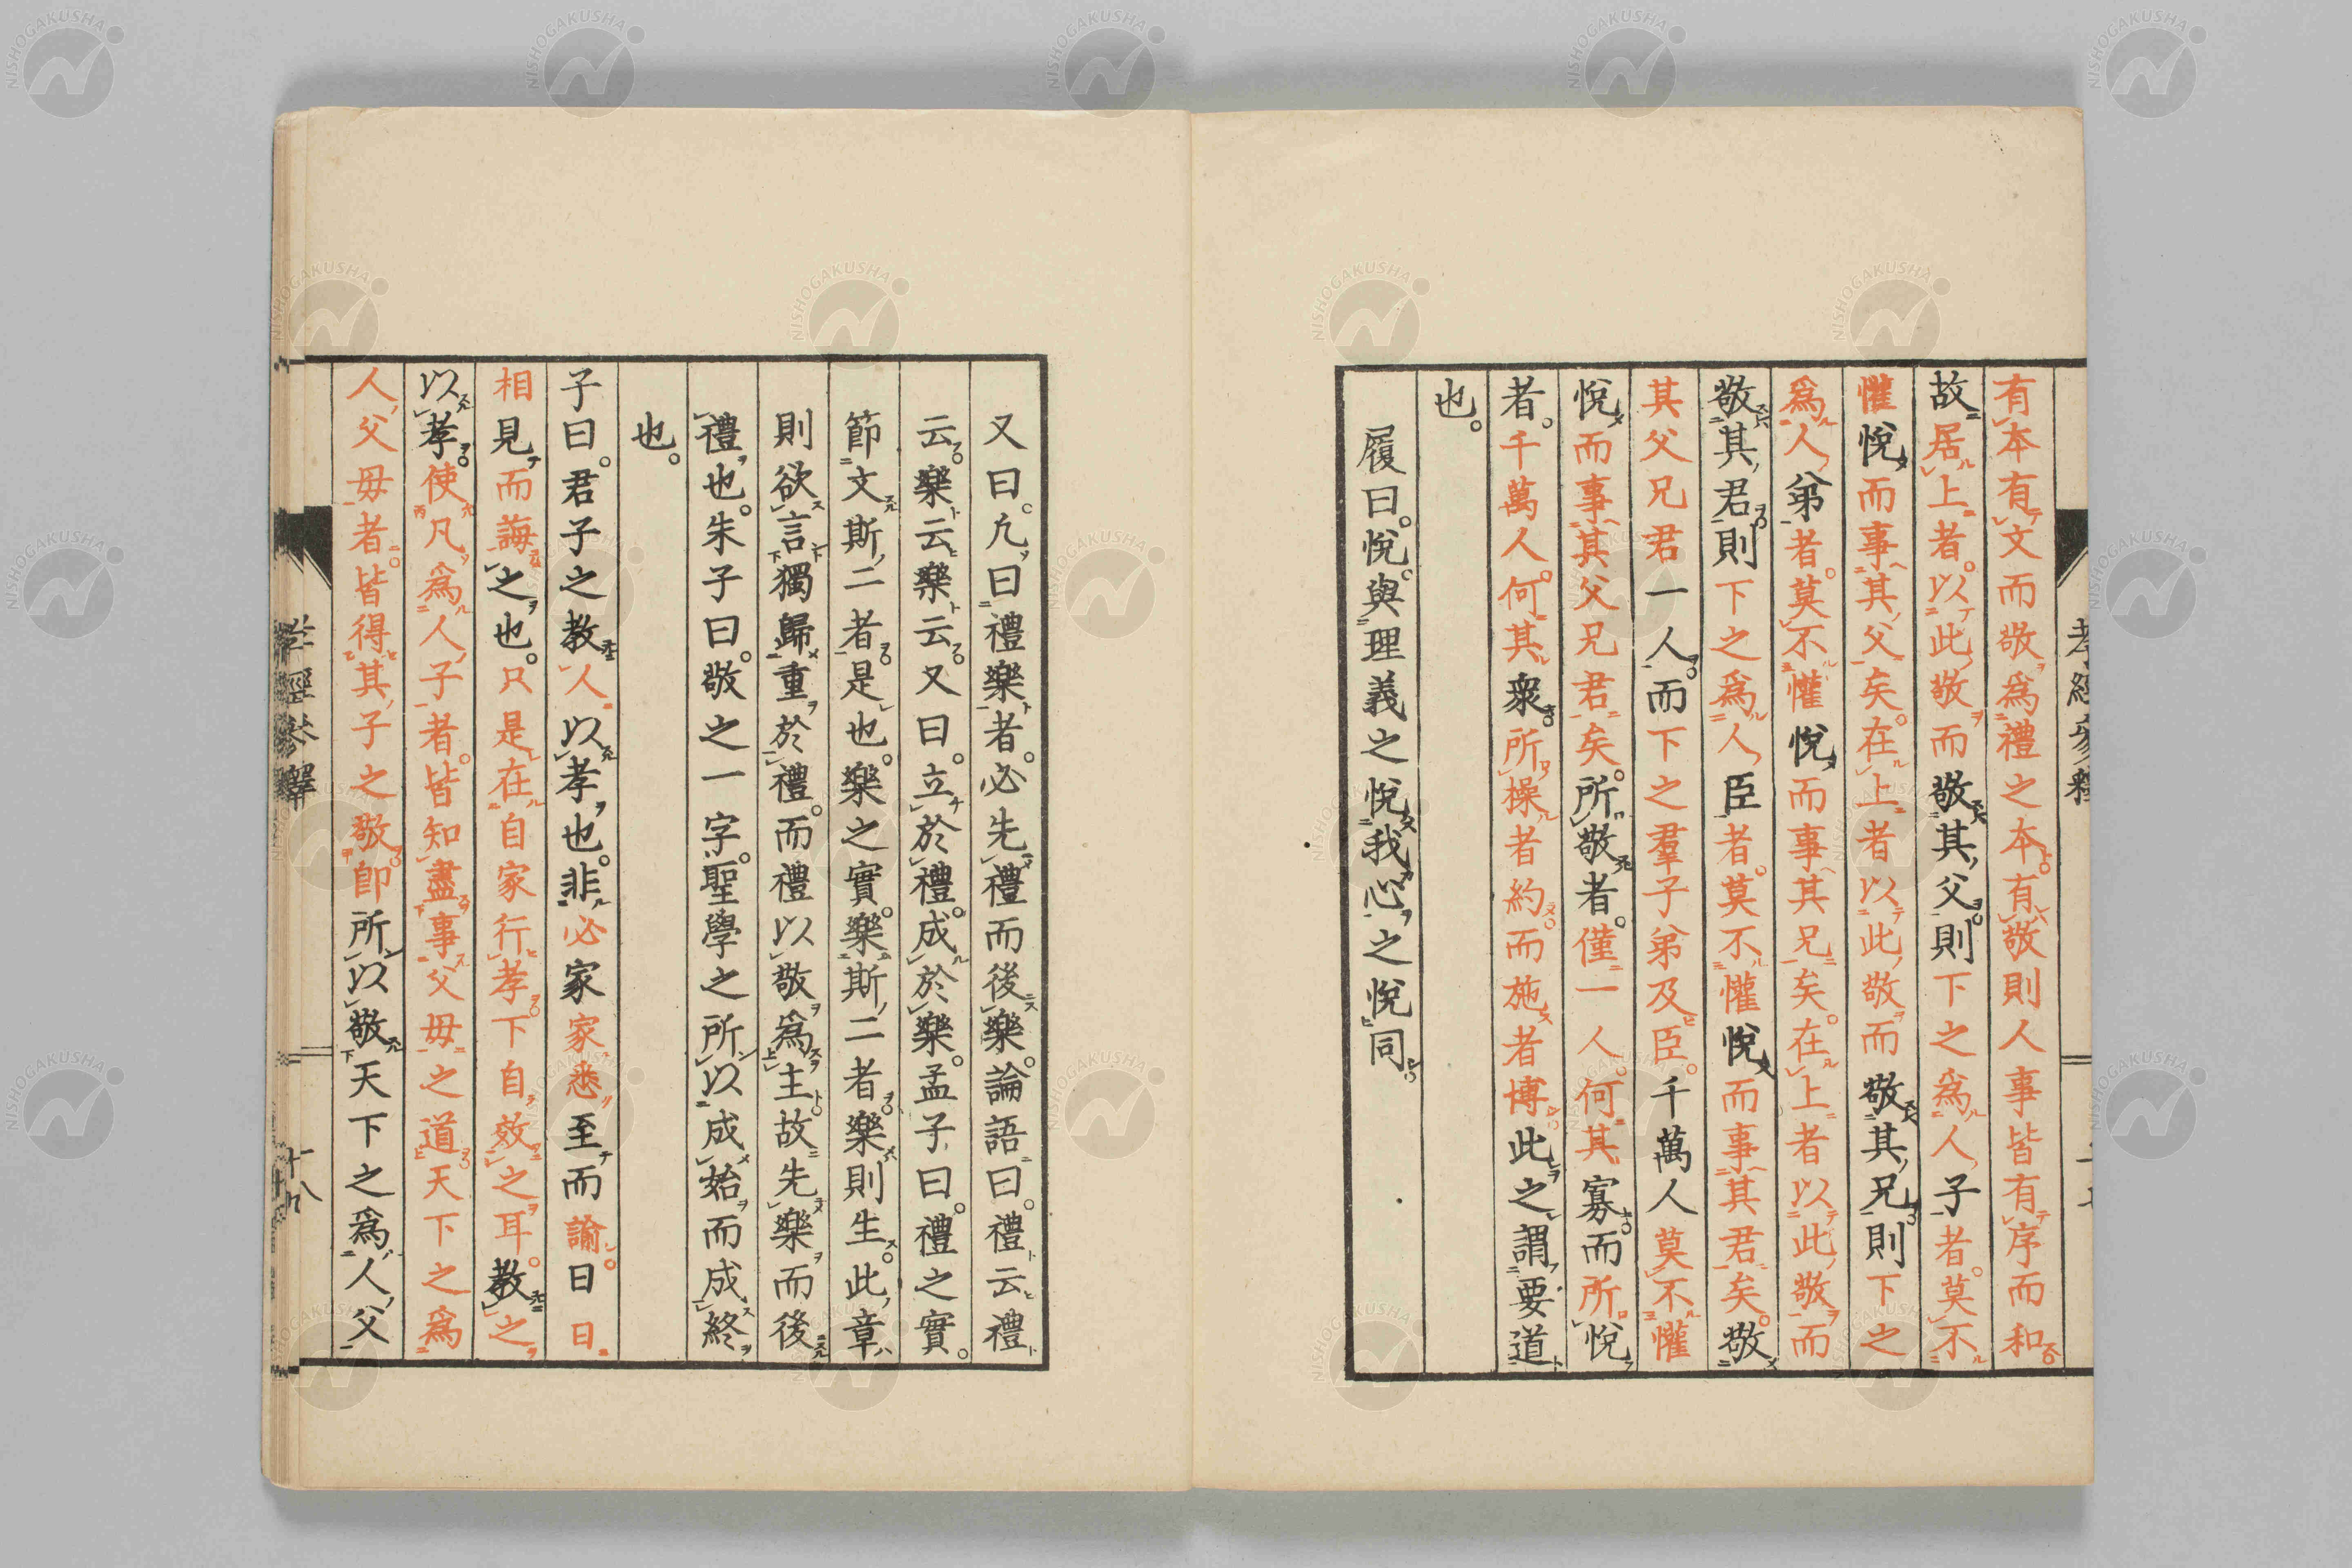 有本有文而敬爲禮之本有敬則人事皆有序而和
故居上者。以此敬而敬其父則下之爲人子者。莫不
懽悅而事其父矣。在上者以此敬而敬其兄則下之
爲人弟者。莫不懽悅而事其兄矣。在上者以此敬而
敬其君則下之爲人臣者。莫不懽悅而事其君矣。敬
其父兄君一人而下之羣子弟及臣。千萬人莫不懽
悅而事其父兄君矣。所敬者。僅一人。何其寡而所悅
者。千萬人。何其衆所操者約而施者博此之謂要道
也。
履曰。悅與理義之悅我心之悅同
又曰。凡曰禮樂者。必先禮而後樂。論語曰。禮云禮
云樂云樂云又曰。立於禮。成於樂。孟子曰。禮之實。
節文斯二者是也。樂之實。樂斯二者。樂則生。此章
則欲言獨歸重於禮。而禮以敬爲主故先樂而後
禮也。朱子曰。敬之一字。聖學之所以成始而成終
也。
子曰。君子之教人以孝也。非必家家悉至而諭。日日
相見而誨之也。只是在自家行孝下自效之耳。教之
以孝。使凡爲人子者。皆知盡事父母之道天下之爲
人父母者。皆得其子之敬卽所以敬天下之爲人父
孝經參釋
十八
NISHOGAKUSHA